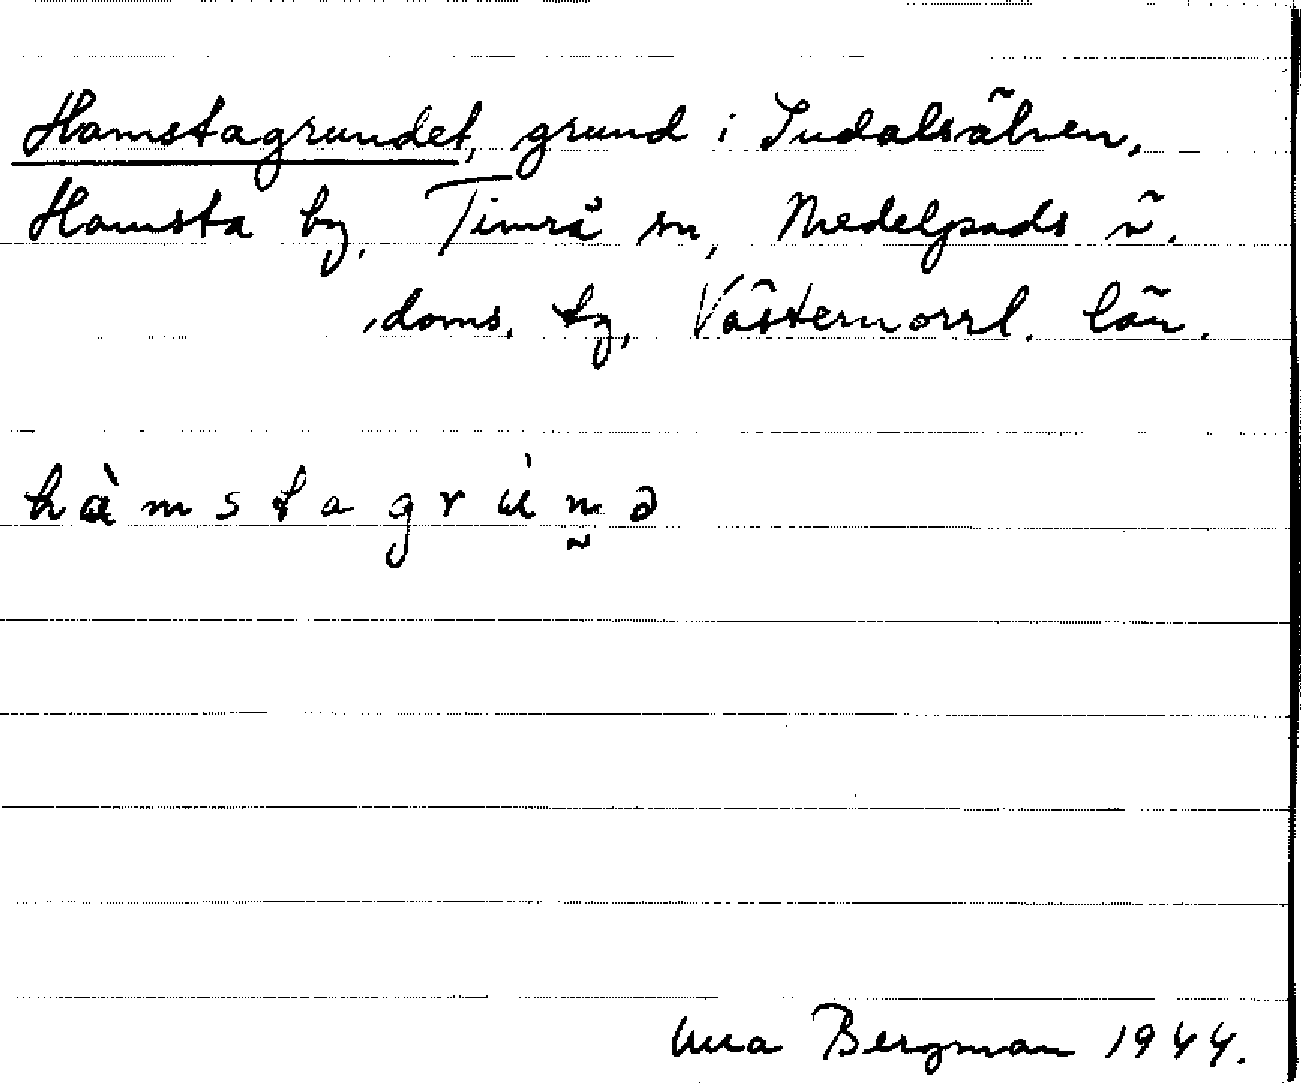 Hamstagrundet, grund i Indalsälven,
Hamsta by, Timrå sn, Medelpads ö.
doms. tg, Västernorrl. län.
hàmstagrùn̰ə
Bergman 1944.